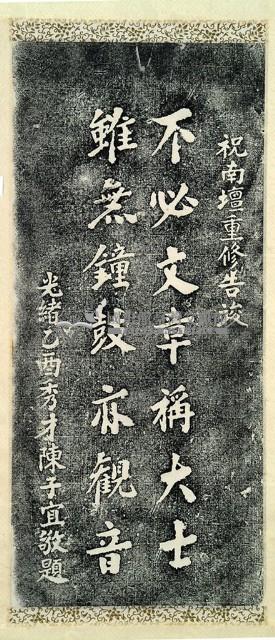 祝南壇重修告蕆
不必文章稱大士
雖無鐘鼓亦觀音
光緒乙酉秀才陳子宜敬題